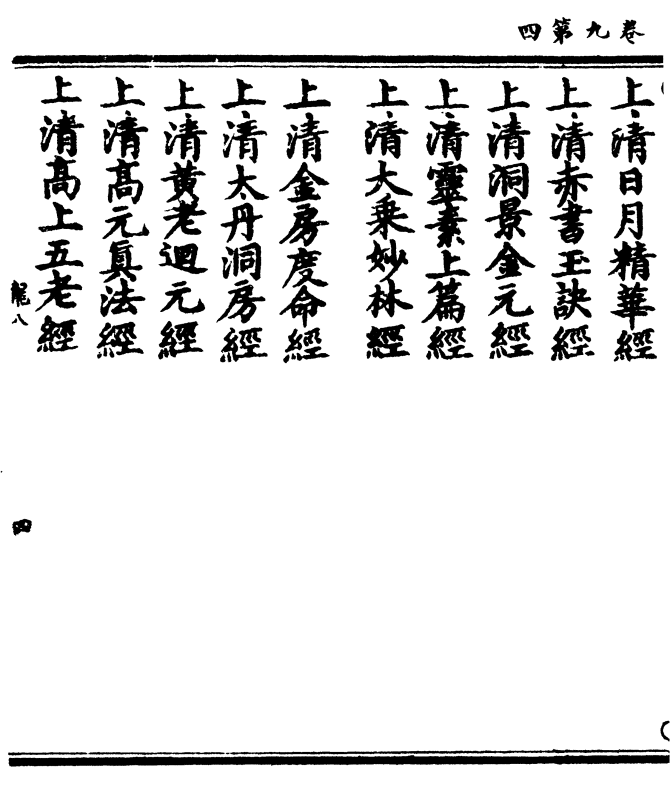 卷九第四
上清日月精華經
上清赤書玉訣經
上清洞景金元經
上清靈素上篇經
上清大乘妙林經
上清金房度命經
上清太丹洞房經
上清黄老迴元經
上清髙元眞法經
上清髙上五老經
龍八
四